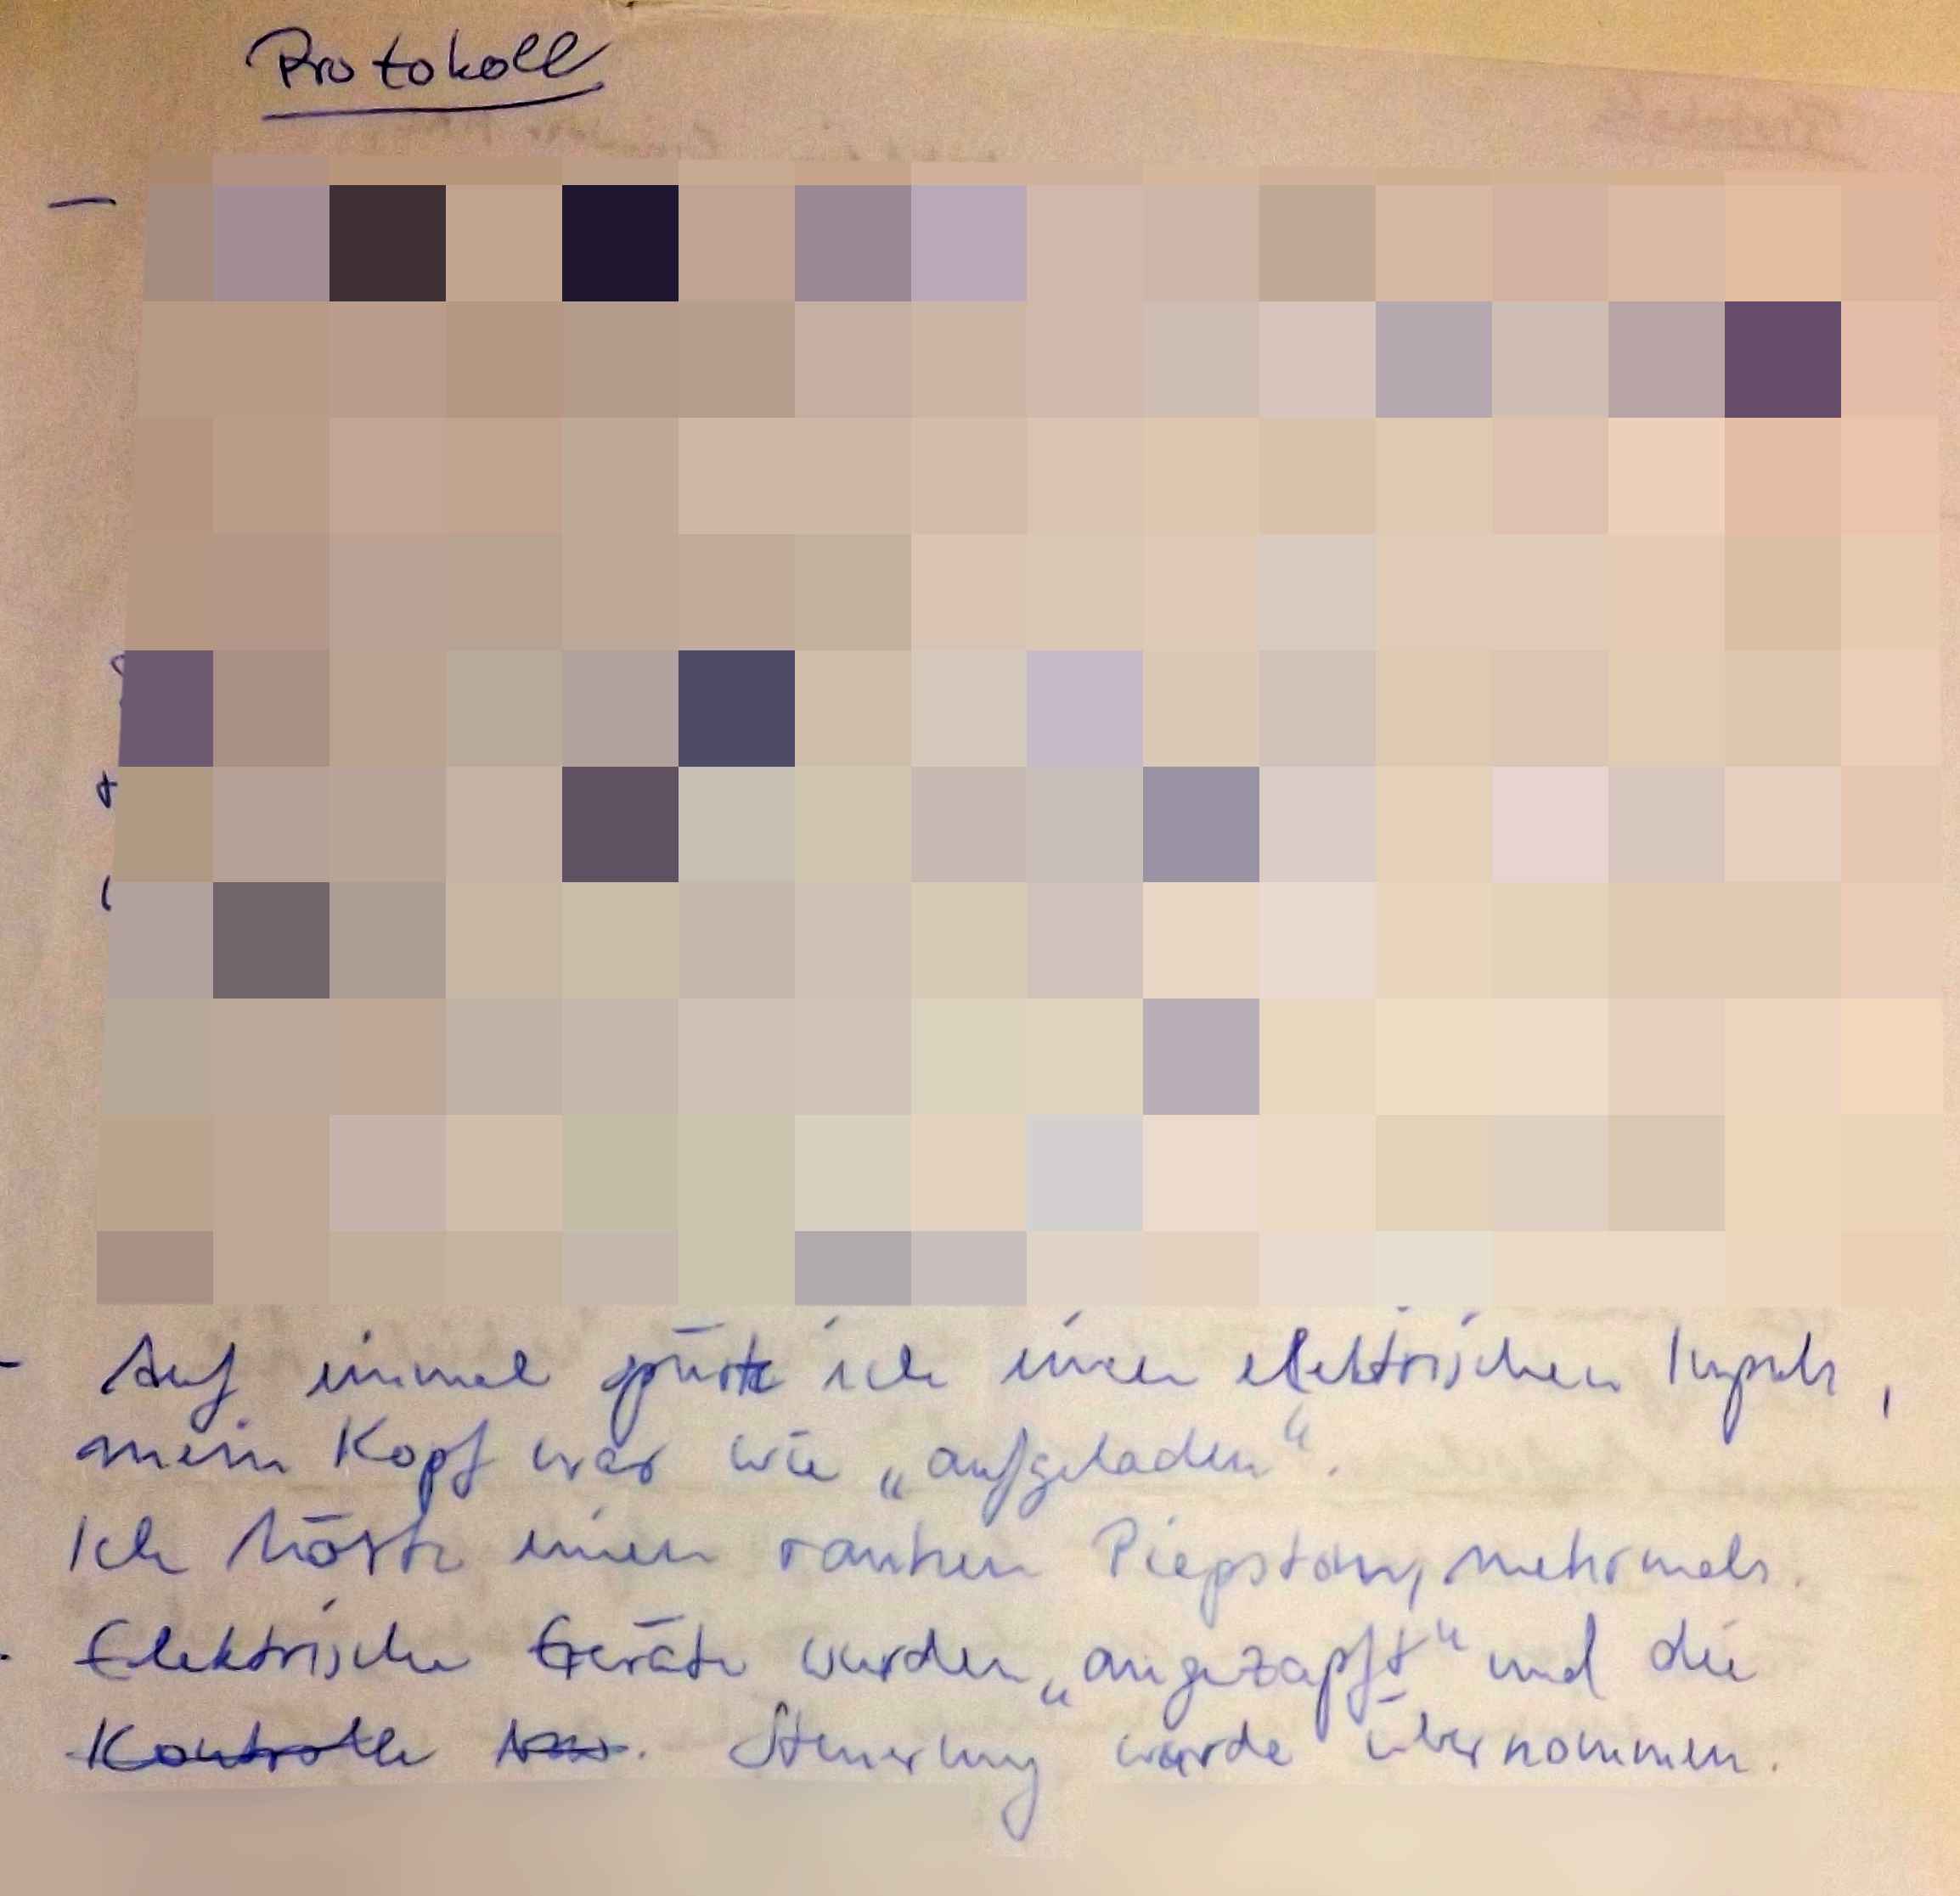 Protokoll
- Auf einmal spürte ich einen elektrischen Impuls,
mein Kopf war wie „aufgeladen“.
Ich hörte einen rauhen Piepston, mehrmals.
- Elektrische Geräte wurden „angezapft“ und die
Kontrolle bzw. Steuerung wurde übernommen.